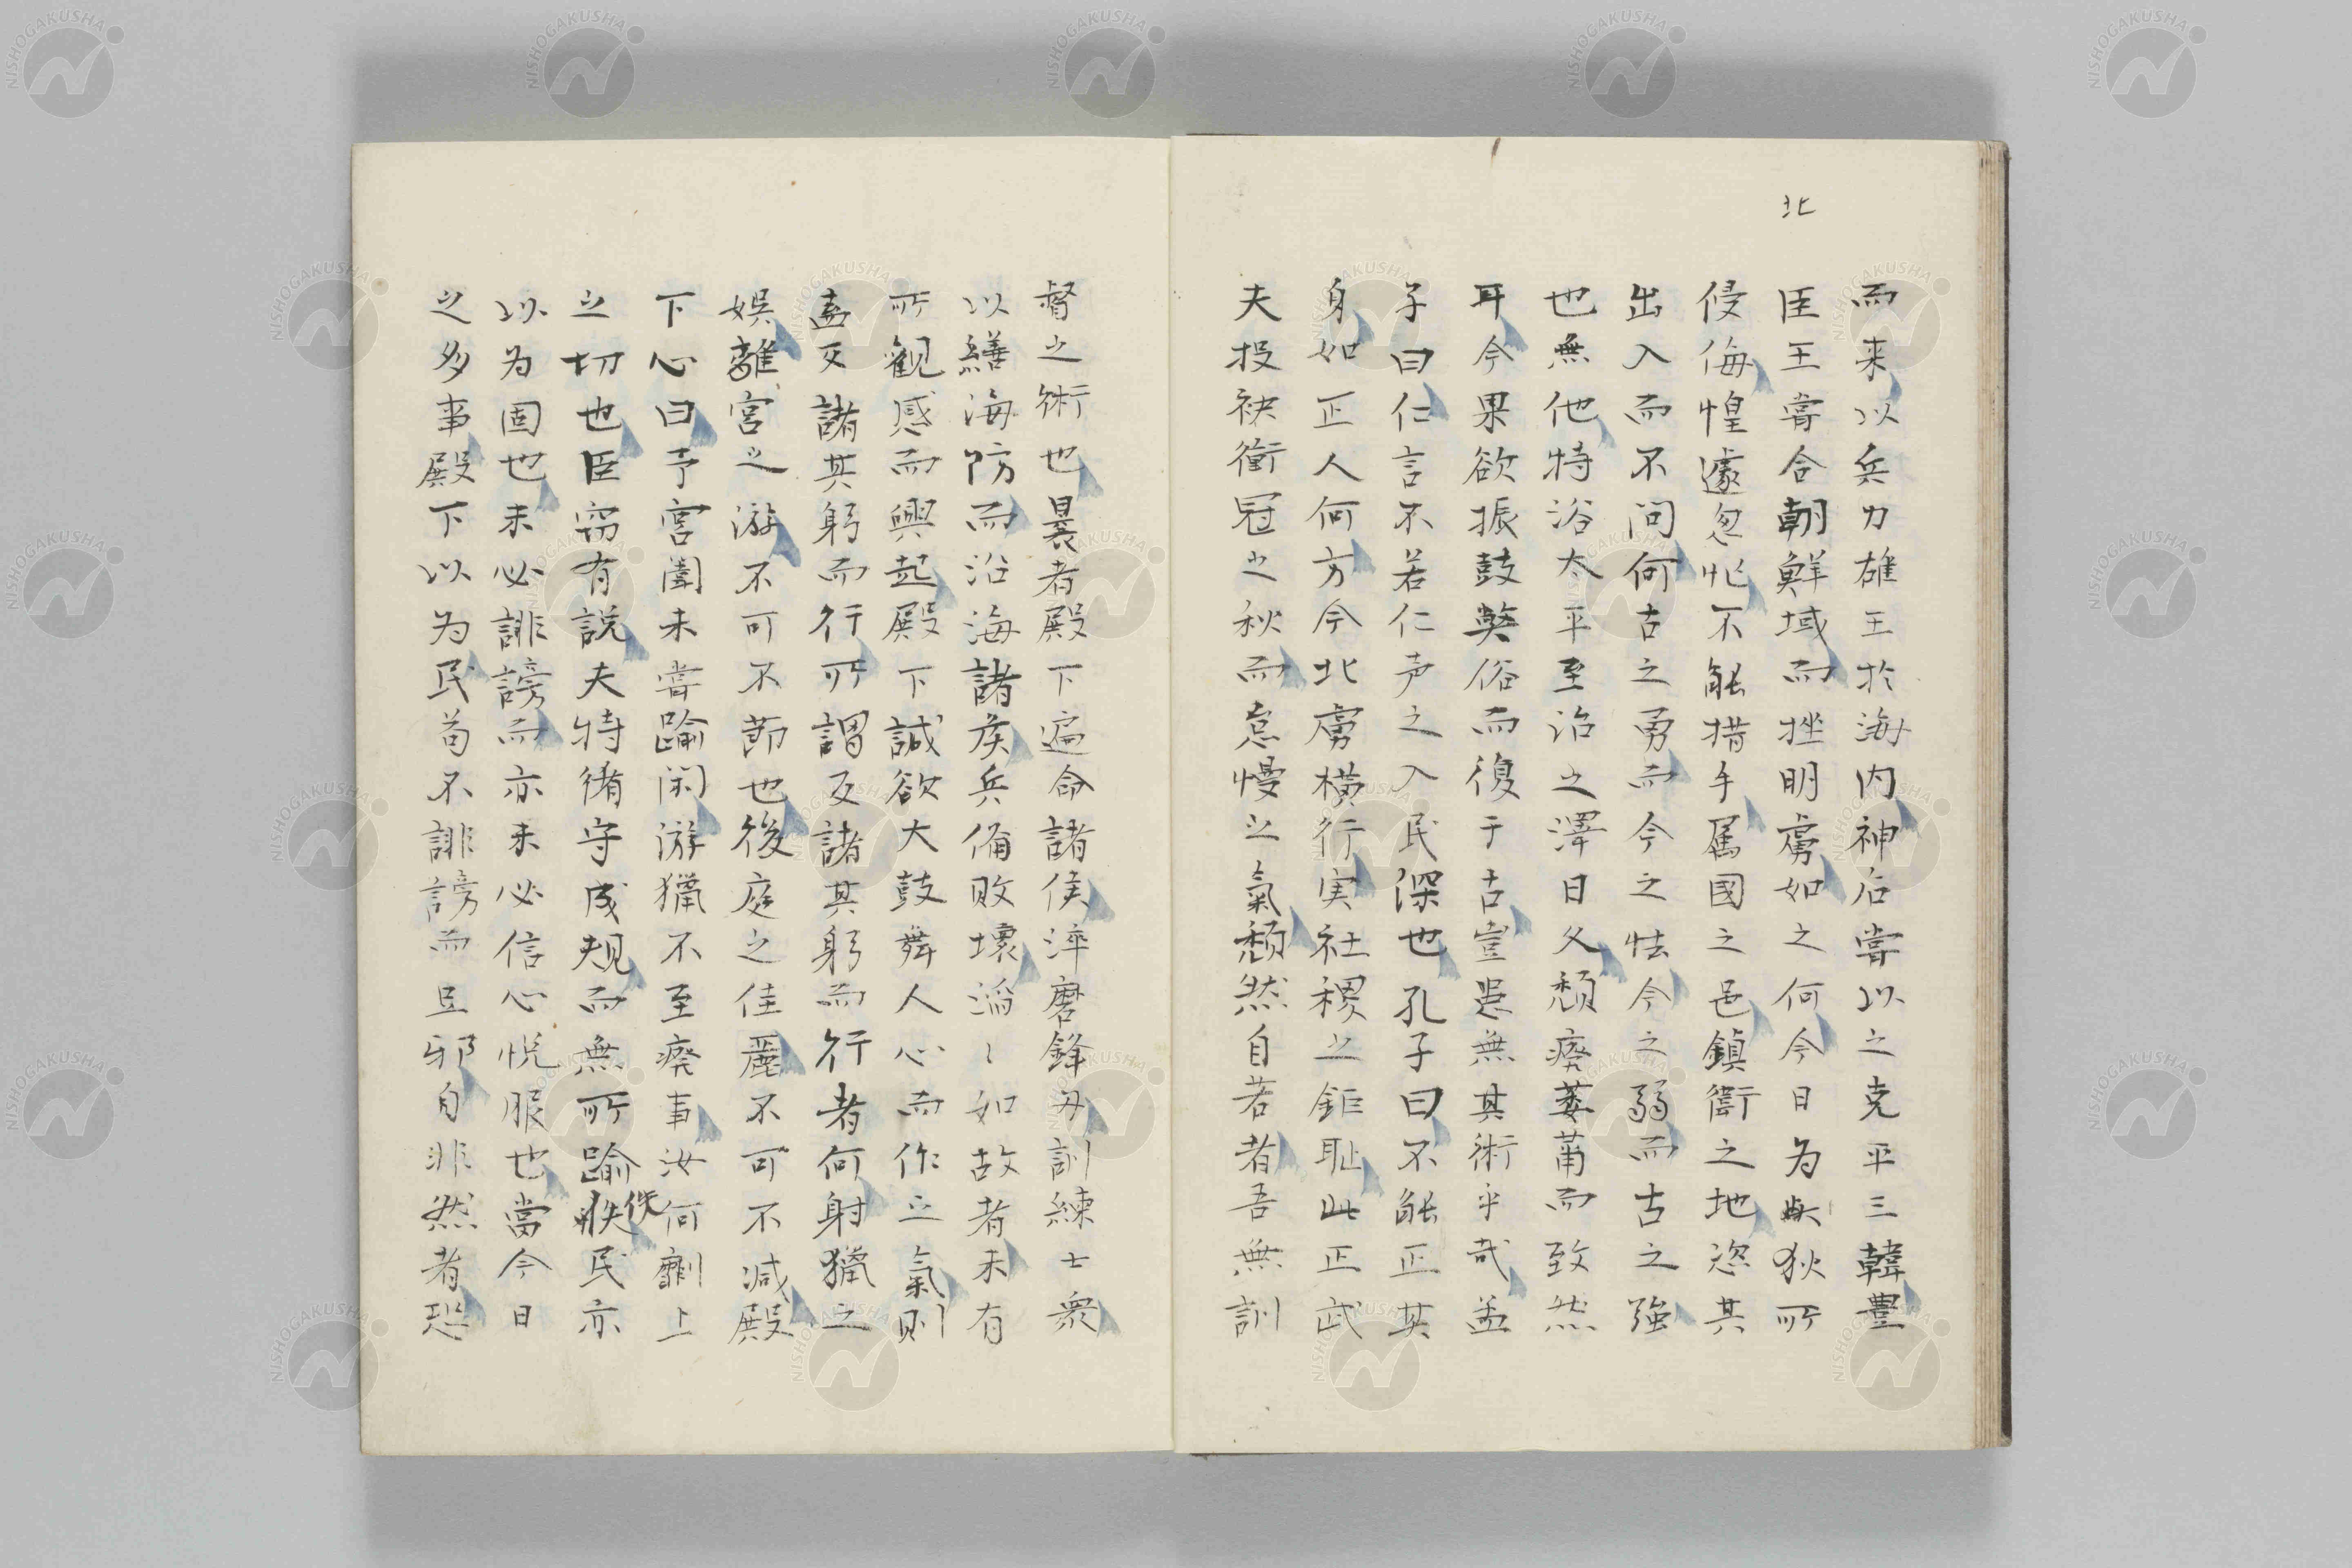 北
而来以兵力雄王於海内神后嘗以之克平三韓豊
臣王嘗合朝鮮域而挫明虜如之何今日為北狄所
侵侮惶遽忽忙不能措手属國之邑鎮衛之地恣其
出入而不問何古之勇而今之怯今之弱而古之強
也無他特浴太平至治之澤日久頽廃萎薾而致然
耳今果欲振鼓獘俗而復于古豈患無其術乎哉孟
子曰仁言不若仁声之入民深也孔子曰不能正其
身如正人何方今北虜横行実社稷之鉅耻此正武
夫投袂衝冠之秋而怠慢之氣頽然自若者吾無訓
督之術也曩者殿下遍命諸侯淬磨鋒刃訓練士衆
以繕海防而沿海諸侯兵備敗壊滔〻如故者未有
所観感而興起殿下誠欲大鼓舞人心而作之氣則
盍反諸其躬而行所謂反諸其躬而行者何射猟之
娯離宮之游不可不節也後庭之佳麗不可不減殿
下心曰予宮闈未嘗踰閑游猟不至廃事汝何劘上
之切也臣窃有説夫特循守成規而無所踰佚民亦
以為固也未必誹謗而亦未必信心悦服也當今日
之多事殿下以為民苟不誹謗而且邪自非然者恐